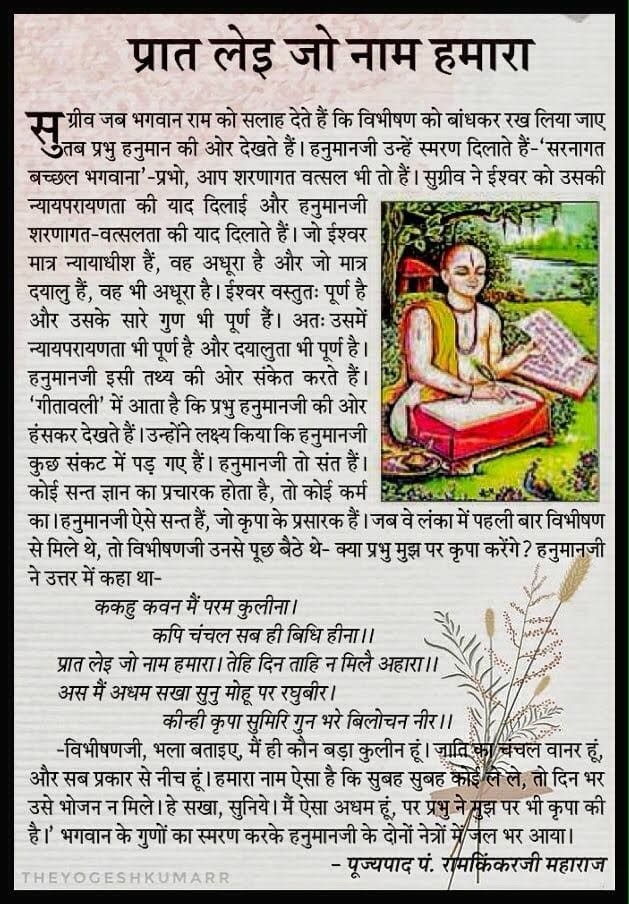 प्रात लेइ जो नाम हमारा
सुग्रीव जब भगवान राम को सलाह देते हैं कि विभीषण को बांधकर रख लिया जाए
तब प्रभु हनुमान की ओर देखते हैं। हनुमानजी उन्हें स्मरण दिलाते हैं-‘सरनागत
बच्छल भगवाना’-प्रभो, आप शरणागत वत्सल भी तो हैं। सुग्रीव ने ईश्वर को उसकी
न्यायपरायणता की याद दिलाई और हनुमानजी
शरणागत-वत्सलता की याद दिलाते हैं। जो ईश्वर
मात्र न्यायाधीश हैं, वह अधूरा है और जो मात्र
दयालु हैं, वह भी अधूरा है। ईश्वर वस्तुतः पूर्ण है
और उसके सारे गुण भी पूर्ण हैं। अतः उसमें
न्यायपरायणता भी पूर्ण है और दयालुता भी पूर्ण है।
हनुमानजी इसी तथ्य की ओर संकेत करते हैं।
‘गीतावली’ में आता है कि प्रभु हनुमानजी की ओर
हंसकर देखते हैं। उन्होंने लक्ष्य किया कि हनुमानजी
कुछ संकट में पड़ गए हैं। हनुमानजी तो संत हैं।
कोई सन्त ज्ञान का प्रचारक होता है, तो कोई कर्म
का। हनुमानजी ऐसे सन्त हैं, जो कृपा के प्रसारक हैं। जब वे लंका में पहली बार विभीषण
से मिले थे, तो विभीषणजी उनसे पूछ बैठे थे- क्या प्रभु मुझ पर कृपा करेंगे? हनुमानजी
ने उत्तर में कहा था-
ककहु कवन मैं परम कुलीना।
कपि चंचल सब ही बिधि हीना।।
प्रात लेइ जो नाम हमारा। तेहि दिन ताहि न मिलै अहारा।।
अस मैं अधम सखा सुनु मोहू पर रघुबीर।
कीन्ही कृपा सुमिरि गुन भरे बिलोचन नीर।।
-विभीषणजी, भला बताइए, मैं ही कौन बड़ा कुलीन हूं। जाति का चंचल वानर हूं,
और सब प्रकार से नीच हूं। हमारा नाम ऐसा है कि सुबह सुबह कोई ले ले, तो दिन भर
उसे भोजन न मिले। हे सखा, सुनिये। मैं ऐसा अधम हूं, पर प्रभु ने मुझ पर भी कृपा की
है।’ भगवान के गुणों का स्मरण करके हनुमानजी के दोनों नेत्रों में जल भर आया।
– पूज्यपाद पं. रामकिंकरजी महाराज
THEYOGESHKUMARR